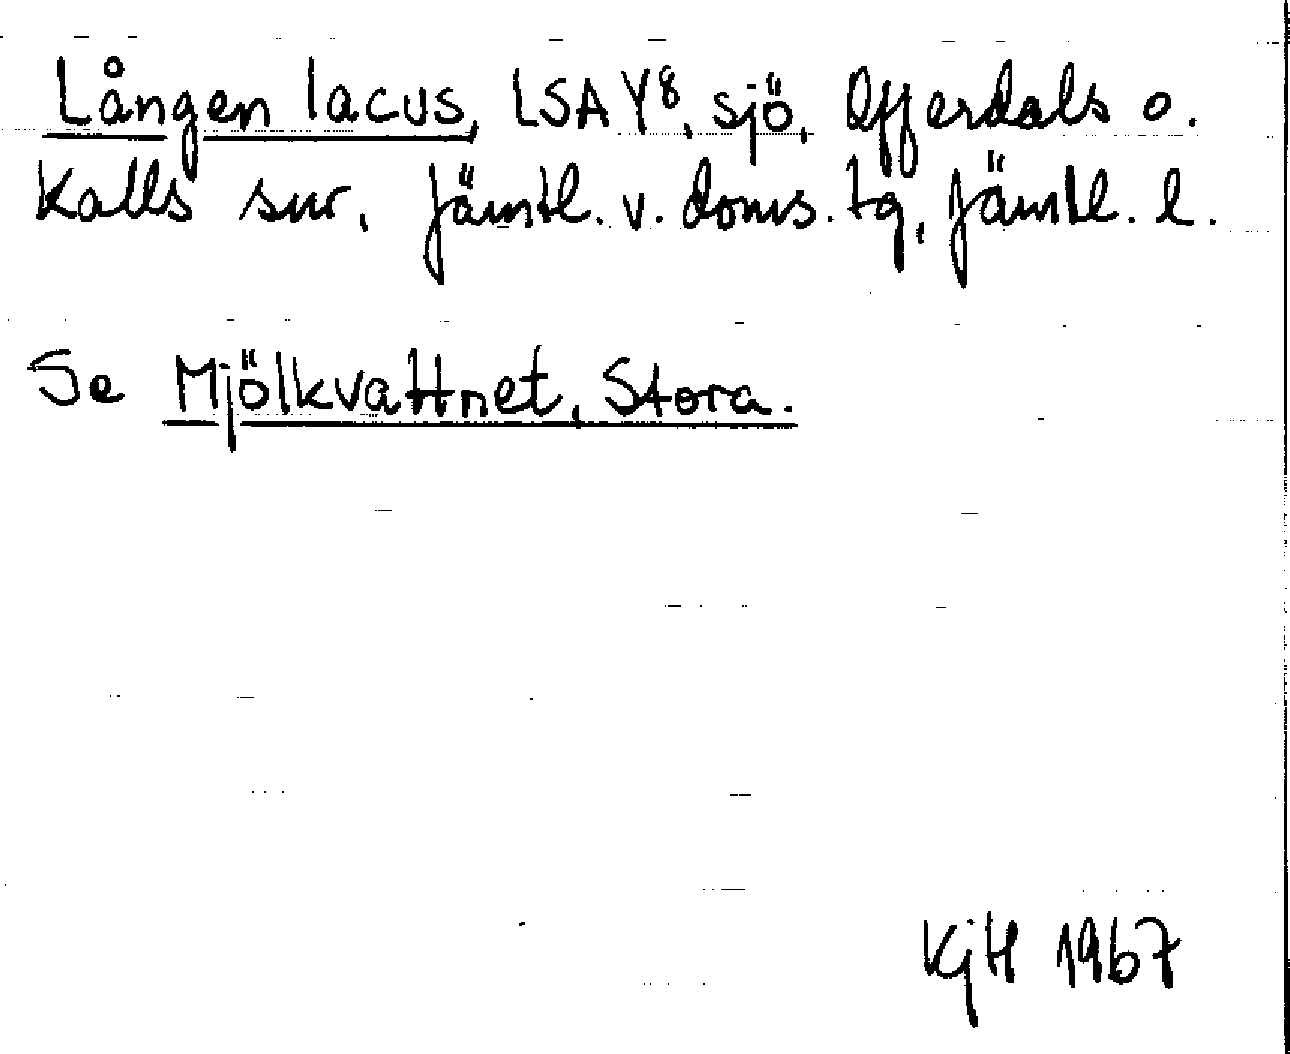 Lången lacus, LSA Y8, sjö, Offerdals o.
Kalls snr, Jämtl. v. doms. tg, Jämtl. l.
Se Mjölkvattnet, Stora.
KGH 1967